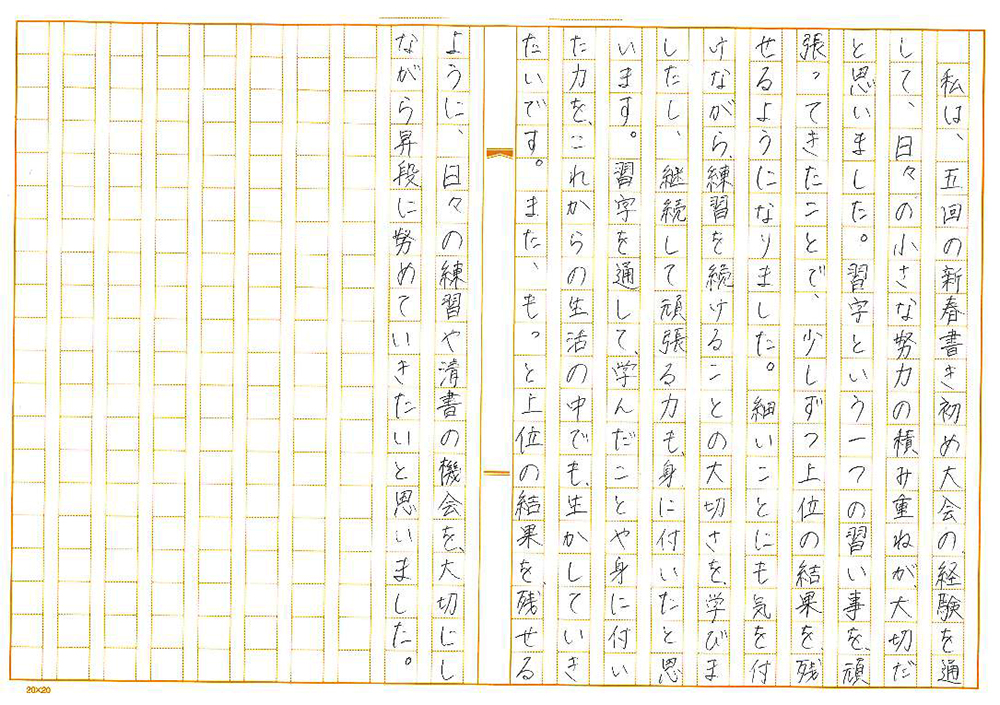 私は、五回の新春書き初め大会の、経験を通
して、日々の小さな努力の積み重ねが、大切だ
と思いました。習字という一つの習い事を、頑
張ってきたことで、少しずつ上位の結果を、残
せるようになりました。細いことにも気を付
けながら、練習を続けることの大切さを、学びま
したし、継続して頑張る力も、身に付いたと思
います。習字を通して、学んだことや身に付い
た力を、これからの生活の中でも、生かしていき
たいです。また、もっと上位の結果を、残せる
ように、日々の練習や清書の機会を、大切にし
ながら昇段に努めていきたいと思いました。
20×20